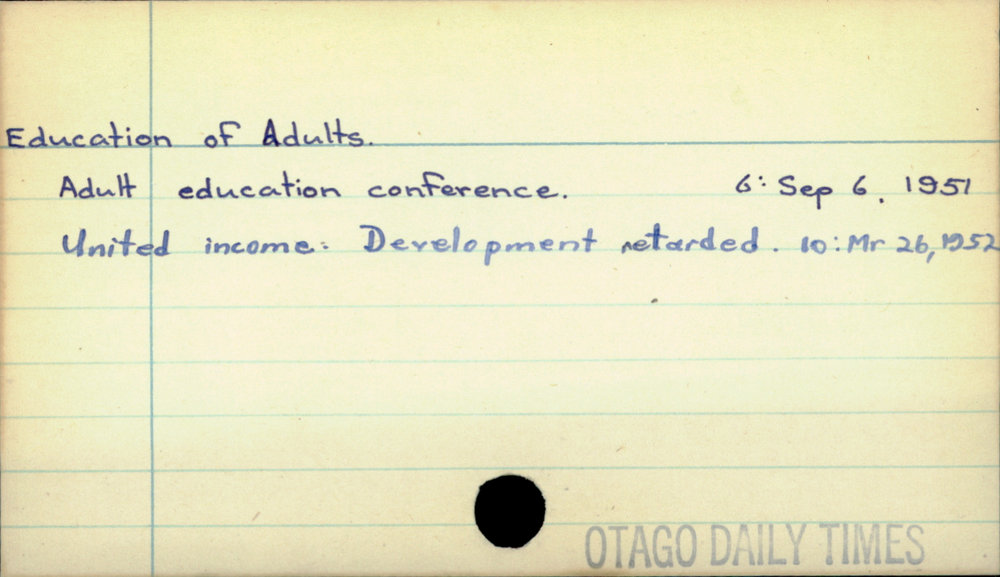 Education of Adults.
Adult education conference. 6: Sep 6, 1951
United income: Development retarded. 10: Mr 26, 1952
OTAGO DAILY TIMES